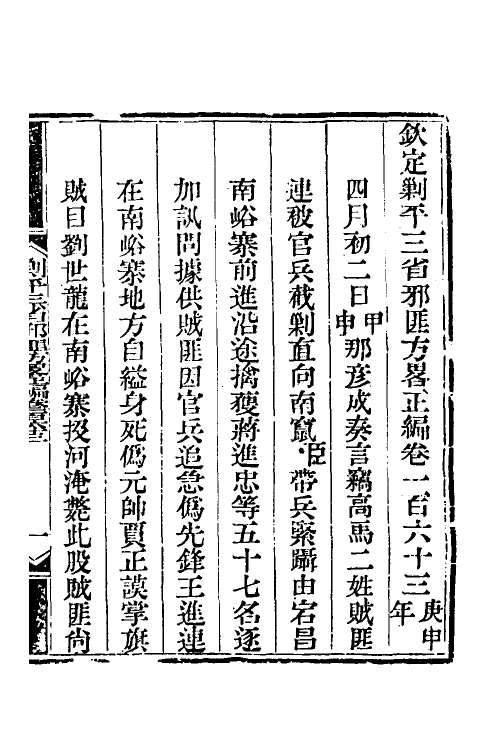 欽定剿平三省邪匪方畧正編卷一百六十三庚申年
四月初二日甲申那彥成奏言竊高馬二姓賊匪
連被官兵截剿直向南竄臣帶兵緊躡由宕昌
南峪寨前進沿途擒獲蔣進忠等五十七名逐
加訊問據供賊匪因官兵追急偽先鋒王進連
在南峪寨地方自縊身死偽元帥賈正謨掌旗
賊目劉世龍在南峪寨投河淹斃此股賊匪尚
剿平三省邪匪方畧正編卷一百六十三
一